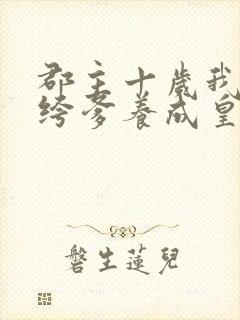 郡主十歲我
綺爹養成皇
磐生蓮兒